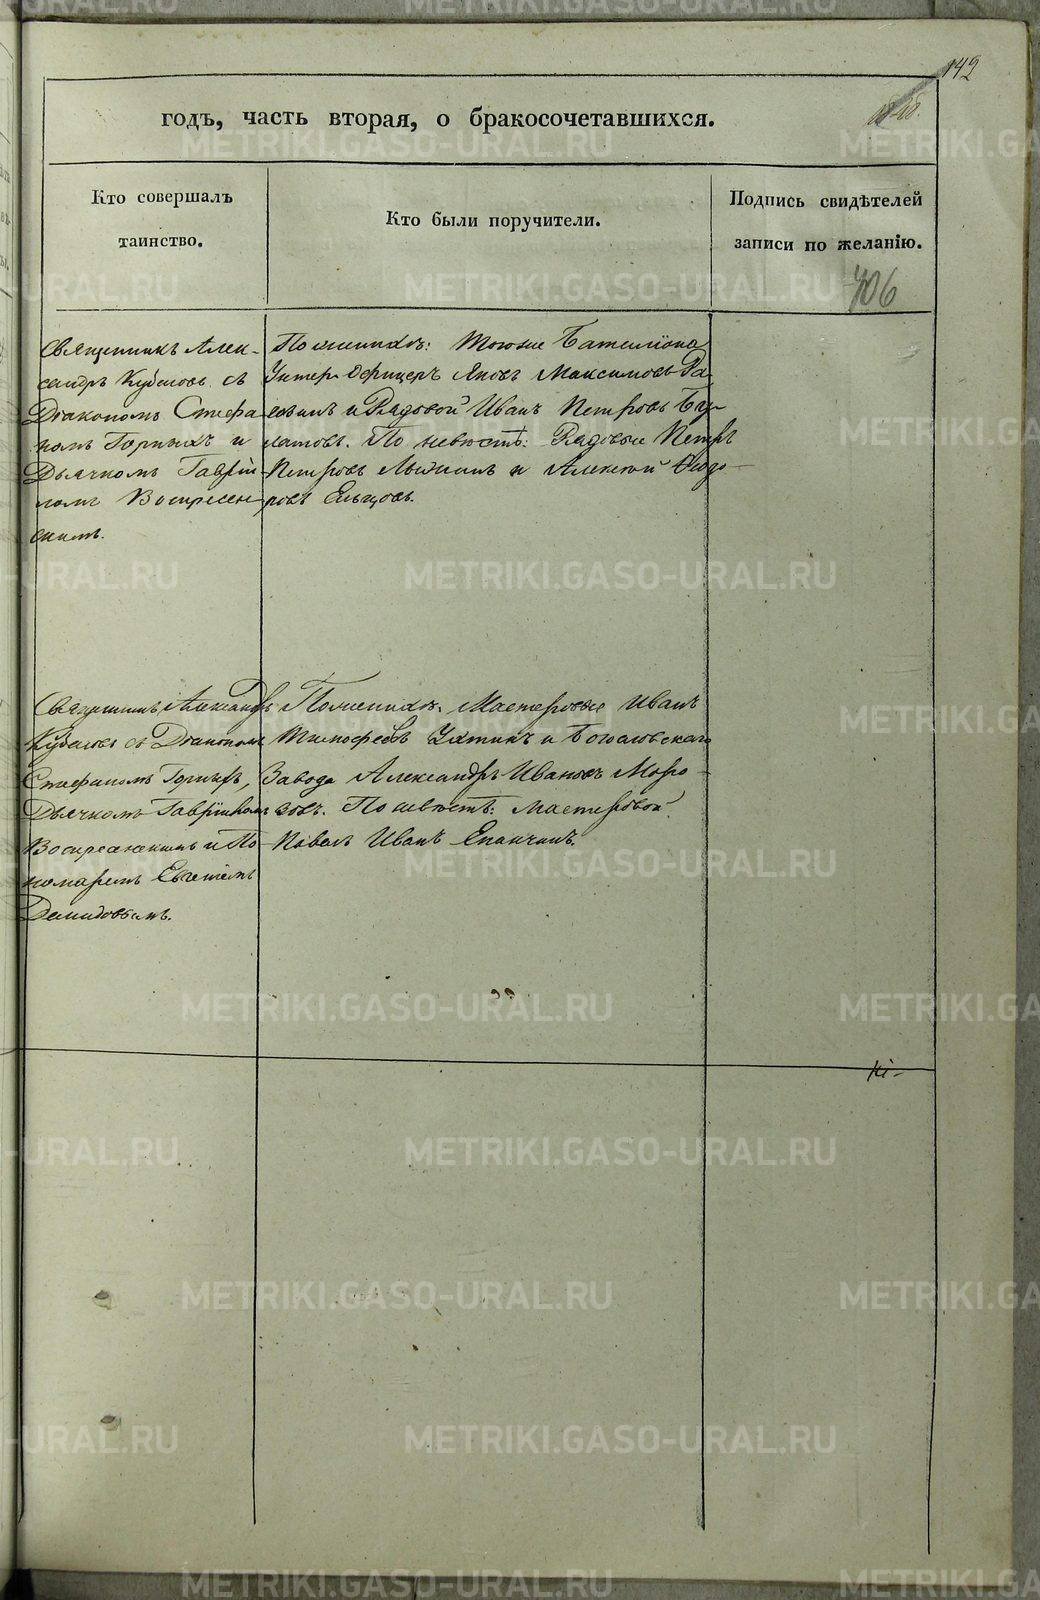 142
годъ, часть вторая, о бракосочетавшихся.
Кто совершалъ
таинство.
Кто были поручители.
Подпись свидѣтелей
записи по желанію.
406
Священникъ Алек-
сандръ Кубасовъ съ
Діакономъ Стефа
номъ Горныхъ и
Дьячкомъ Гаврїи
ломъ Воскресен
скимъ.
По женихѣ: тогоже Баталїона
Унтеръ Офицеръ Яковъ Максимовъ
и Рядовой Иванъ Петровъ Бу-
латовъ. По невѣстѣ: Рядовые Петръ
Петровъ и Алексѣй Ѳеодо-
ровъ Ельцовъ.
Священникъ Александръ
Кубасовъ съ Діакономъ
Стефаномъ Горныхъ,
Дьячкомъ Гавріиломъ
Воскресенскимъ и По
номаремъ Евгеніемъ
Демидовымъ.
По женихѣ: Мастеровые Иванъ
Тимофеевъ и Богословскаго
Завода Александръ Ивановъ Моро-
зовъ. По невѣстѣ: мастеровой
Иванъ Епанчинъ.
METRIKI.GASO-URAL.RU